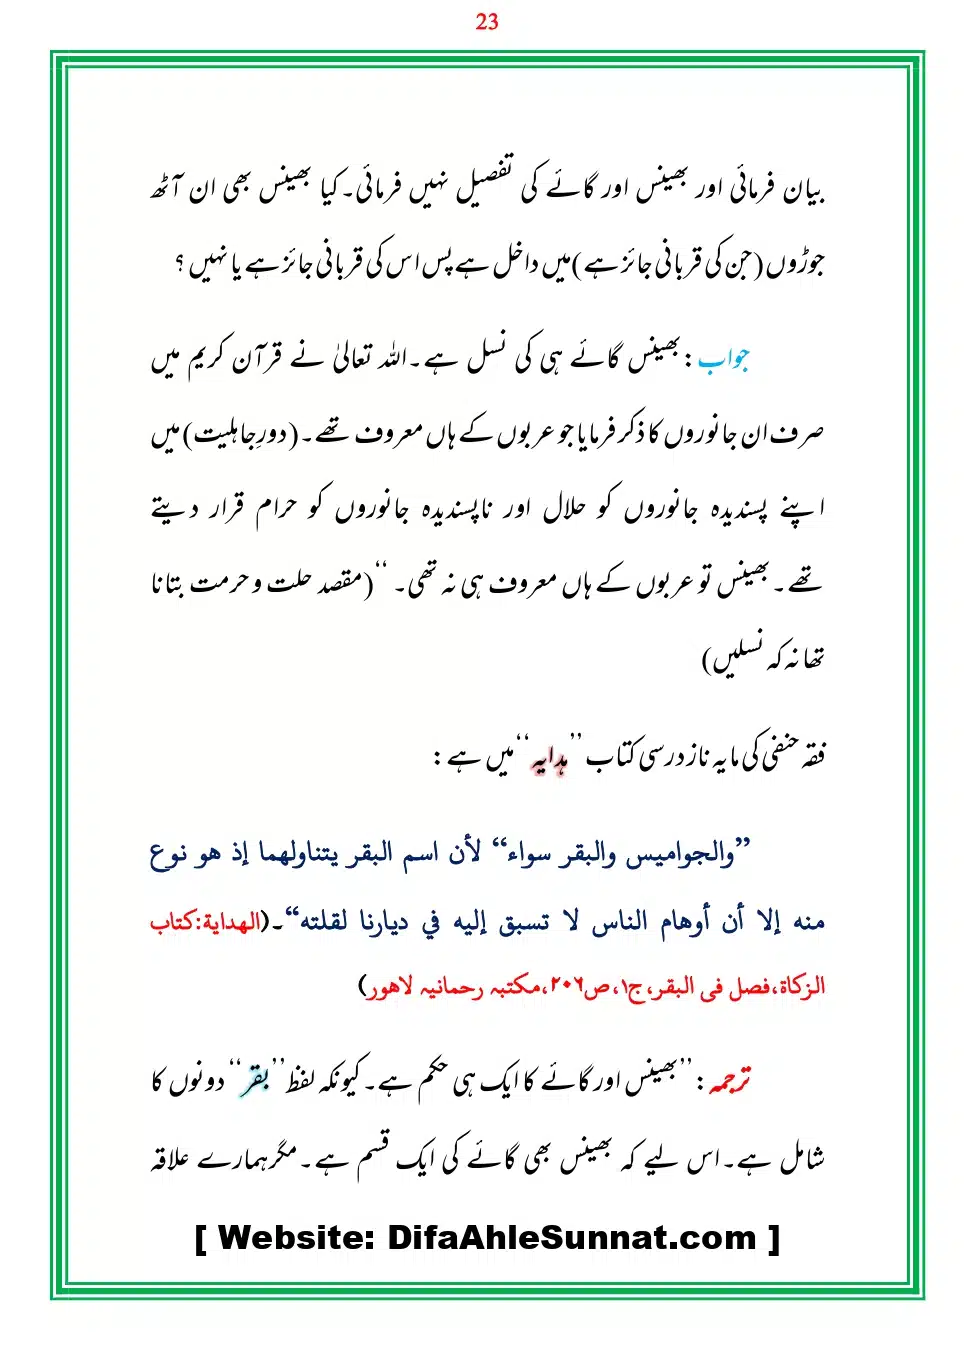 23
بیان فرمائی اور بھینس اور گائے کی تفصیل نہیں فرمائی۔کیا بھینس بھی ان آٹھ
جوڑوں (جن کی قربانی جائز ہے)میں داخل ہے پس اس کی قربانی جائز ہے یا نہیں ؟
جواب:بھینس گائے ہی کی نسل ہے۔اللہ تعالیٰ نے قرآن کریم میں
صرف ان جانوروں کا ذکر فرمایا جو عربوں کے ہاں معروف تھے۔(دورِجاہلیت)میں
اپنے پسندیدہ جانوروں کو حلال اور ناپسندیدہ جانوروں کو حرام قرار دیتے
تھے۔بھینس تو عربوں کے ہاں معروف ہی نہ تھی۔‘‘(مقصد حلت و حرمت بتانا
تھا نہ کہ نسلیں)
فقہ حنفی کی مایہ ناز درسی کتاب ’’ہدایہ‘‘میں ہے:
’’والجواميس والبقر سواء‘‘ لأن اسم البقر يتناولهما إذ هو نوع
منه إلا أن أوهام الناس لا تسبق إليه في ديارنا لقلته‘‘۔(الهداية:كتاب
الزكاة،فصل فی البقر،ج۱،ص۲۰۶،مکتبہ رحمانیہ لاھور)
ترجمہ:’’بھینس اور گائے کا ایک ہی حکم ہے۔کیونکہ لفظ’’بقر‘‘دونوں کا
شامل ہے۔اس لیے کہ بھینس بھی گائے کی ایک قسم ہے۔مگر ہمارے علاقہ
[ Website: DifaAhleSunnat.com ]